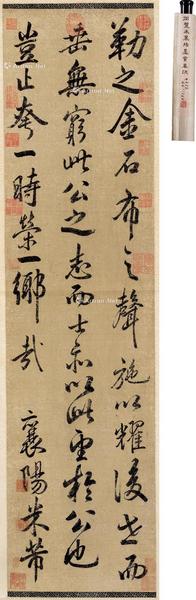 勒之金石布之聲施以耀後世而
垂無窮此公之志而士亦以此望於公也
豈止夸一時榮一鄉哉
襄陽米芾